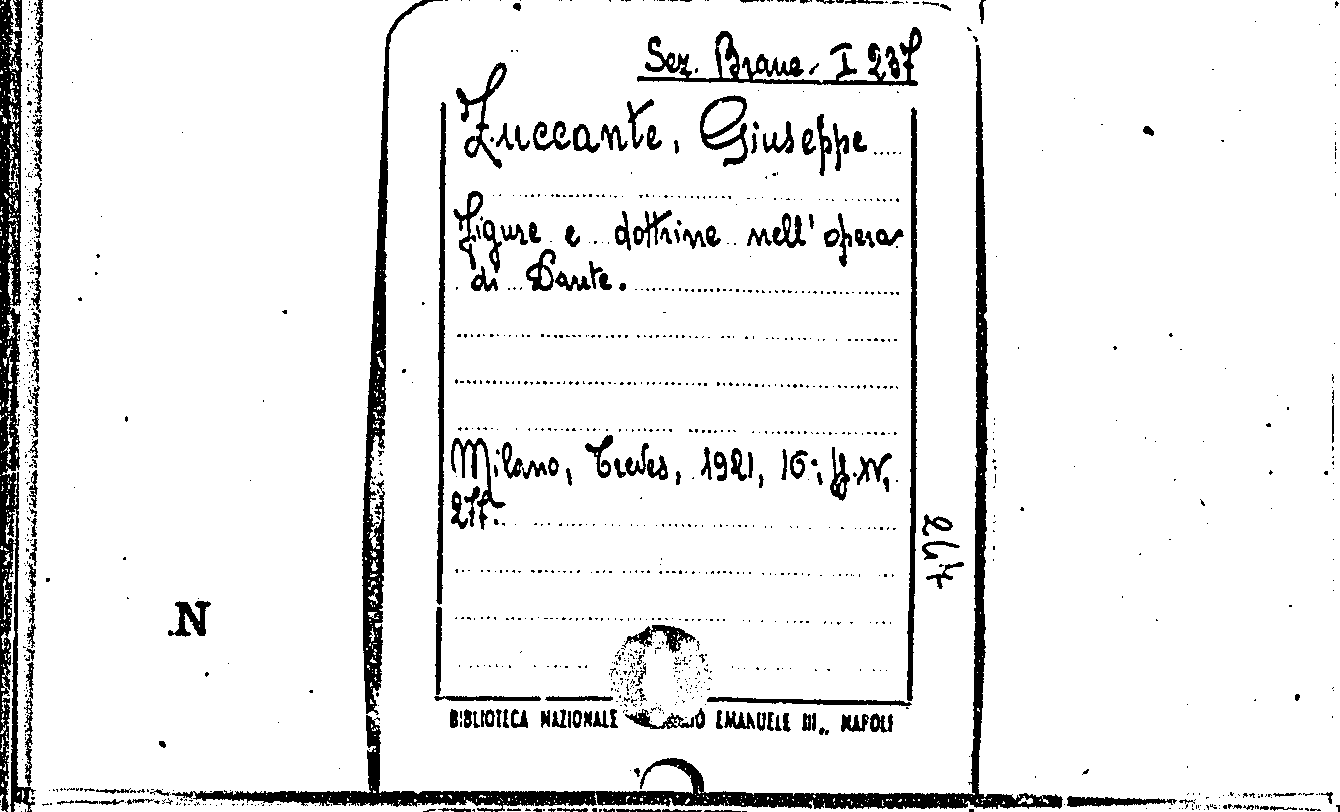 Sez. Branc. I 237
Zuccante, Giuseppe
Figure e dottrine nell' opera
di Dante.
Milano, Treves, 1921, 16°, pp. XV,
277.
247
N.
BIBLIOTECA NAZIONALE EMANUELE III„ NAPOLI